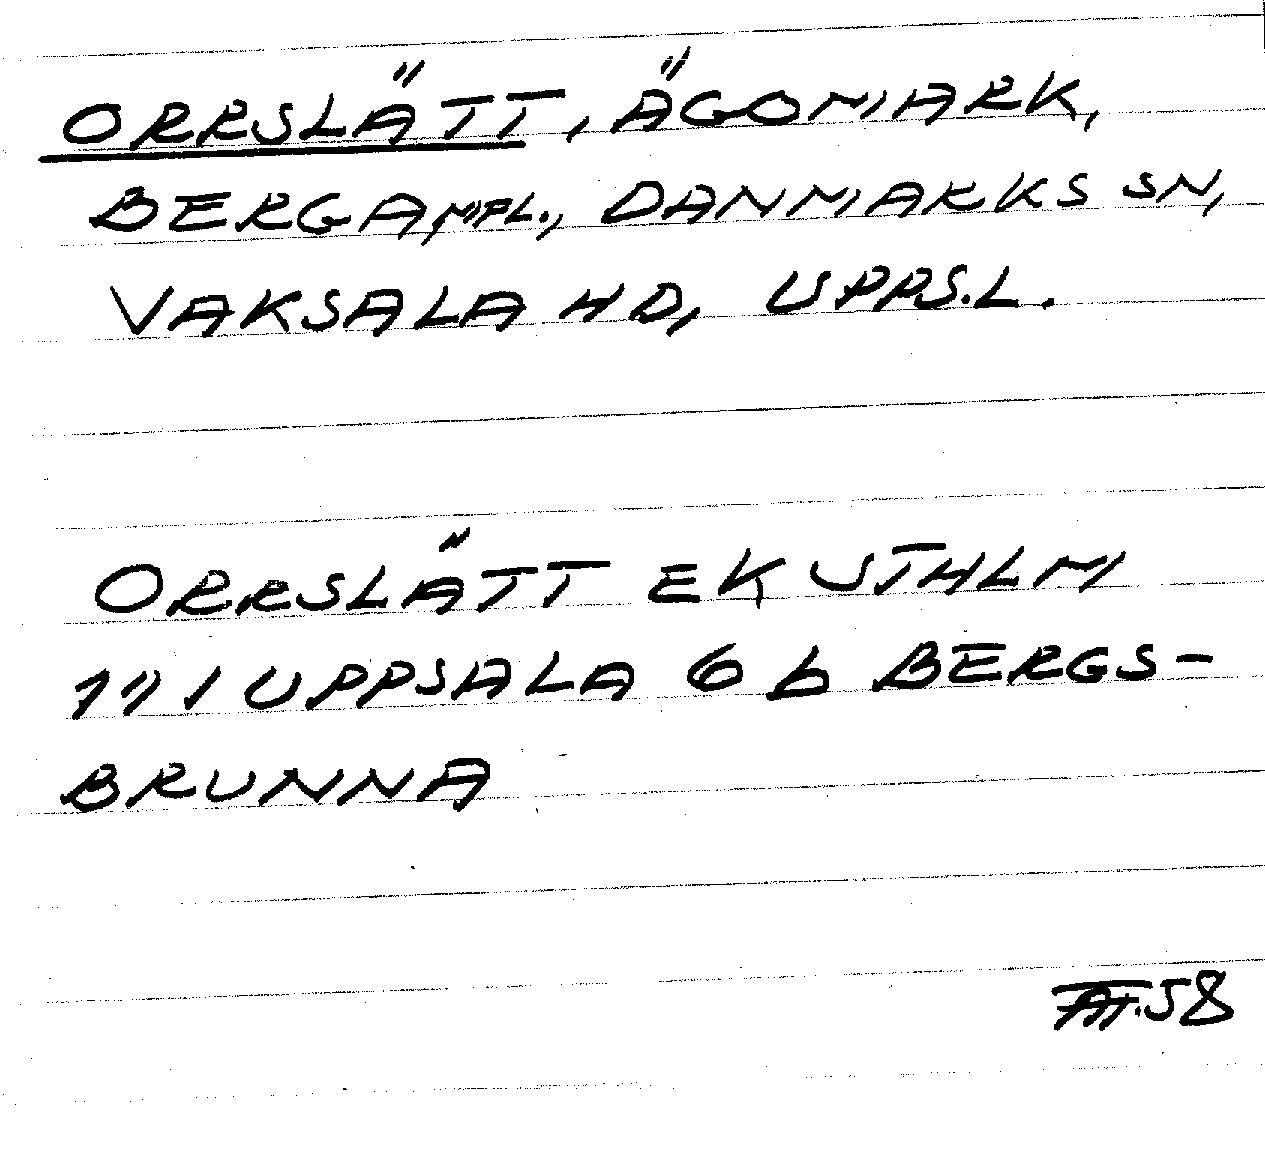 ORRSLÄTT, ÄGOMARK,
BERGA MFL., DANMARKS SN,
VAKSALA HD, UPPS.L.
ORRSLÄTT EK UTHLM
1" I UPPSALA 6 b BERGS-
BRUNNA
58